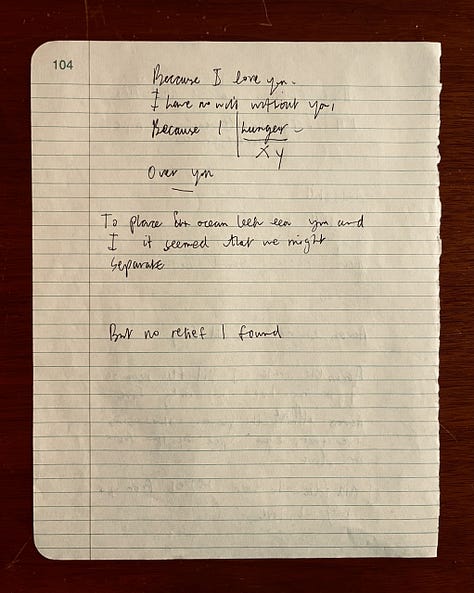 104
Because I love you.
I have no without you,
Because I hunger -
X y
Over you
To place an ocean between you and
I it seemed that we might
separate
But no relief I found